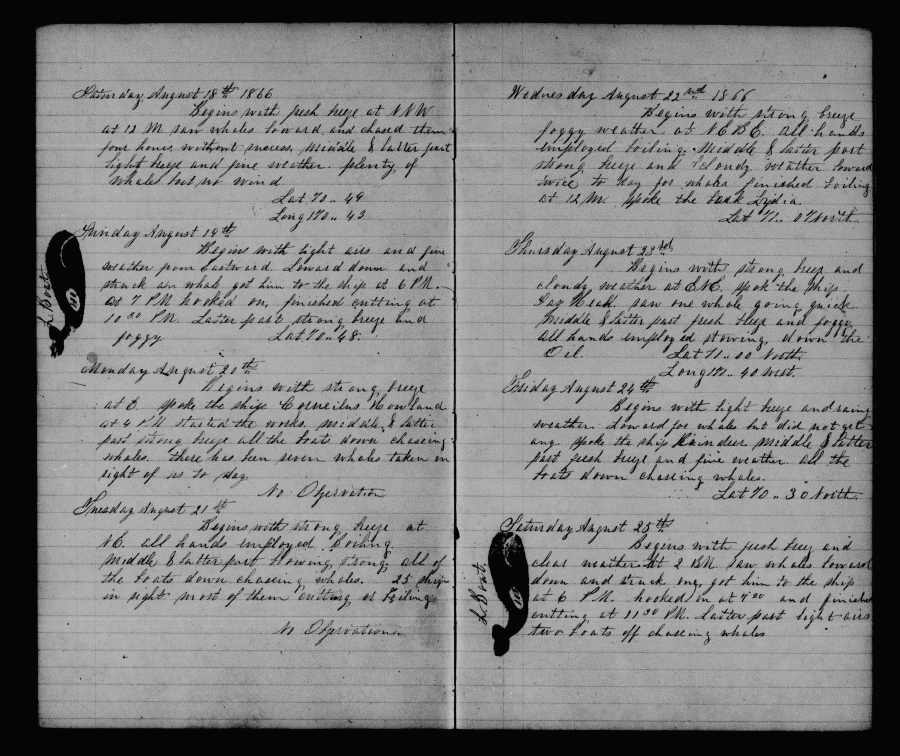 Saturday August 18th 1866
Begins with fresh breze at NNW
at 12 M. saw whales loward and chased them
four hours without success. middle & latter part
light breze and fine weather. plenty of
whales but no wind
Lat 70 .. 49
Long 170 .. 43
Sunday August 19th
Begins with light airs and fine
weather from Eastward. Loward down and
struck an whale got him to the ship at 6 PM.
at 7 PM hooked on, finished cutting at
10 30 PM. Latter part strong breze and
foggy. Lat 70 .. 48.
L. Boat
Monday August 20th
Begins with strong breze
at E. spoke the ship Corneilus Howland
at 4 PM started the works. middle & latter
part strong breze all the boats down chaseing
whales. there has been seven whales taken in
sight of us to day
No Observation
Tuesday August 21st
Begins with strong breze at
NE. all hands employed Boiling.
Middle & latter part blowing strong, all of
the boats down chasing whales. 25 ships
in sight most of them cutting or Boiling
No Observations.
Wednesday August 22nd 1866
Begins with strong breze
foggy weather at NEBE. all hands
employed boiling. Middle & latter part
strong breze and cloudy weather loward
twice to day for whales finished boiling
at 12 M. spoke the bark Lydia
Lat 71 .. 07 North.
Thursday August 23rd
Begins with strong breze and
cloudy weather at ENE. spok the ship
Gay Head. saw one whale going quick
Middle & latter part fresh breze and foggy,
all hands employed stowing down the
Oil. Lat 71 .. 00 North.
Long 171 .. 40 West.
Friday August 24th
Begins with light breze and rainy
weather. Loward for whales but did not get
any. spoke the ship Raindeer. middle & latter
part fresh breze and fine weather all the
boats down chasing whales.
Lat 70 .. 30 North.
Saturday August 25th
Begins with fresh brez and
clear weather. At 2 PM. saw whales Loward
down and struck one, got him to the ship
at 6 PM. hooked on at 7 00 and finished
cutting at 11 30 PM. Latter part light airs
two boats off chasing whales
L. Boat